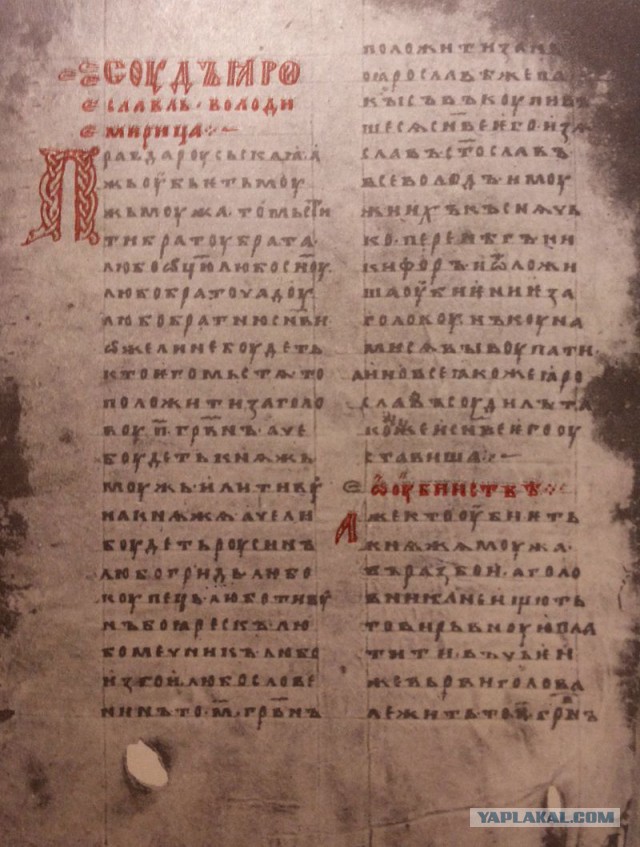 СОУДЪ ꙖРО
СЛАВЛЬ · ВОЛОДИ
МИРИЦА ⁘~
Правда роусьская · а
жь оубьѥть моу
жь моужа · то мьстити
ти братоу брата ·
любо ѿцю любо сн҃оу ·
любо братоу чадоу ·
любо братню сн҃ви
ѡже ли не боудеть
кто ѥго мьстѧ то
положити за голо
воу · п҃ · грв҃нъ · аче
боудеть кнѧжь
моужь · или тивоу
на кнѧжѧ аче ли
боудеть роусинъ
любо гридь · любо
коупець · любо тивоу
нъ боꙗрескъ · лю
бо мечникъ · любо
изгои · любо слове
нинъ то · м҃ · грв҃нъ
положити за нь
по ꙗрославѣ же па
кы съвъкоупивъ
шесѧ сн҃ве ѥго · изѧ
славъ · ст҃ославъ ·
всеволодъ · и моу
жи ихъ · къснѧчь
ко · перенѣгъ · ни
кифоръ · и ѿложи
ша оубиѥниѥ за
голову · нъ коуна
ми сѧ выкоупати ·
а ино все ꙗкоже ꙗро
славъ соудилъ · та
коже и сн҃ве ѥго оу
ставиша ⁘~
ѡ оубииствѣ ⁘~
Аже кто оубиѥть
кнѧжѧ моужа ·
въ разбои · а голо
вника не ищють
то вирьвноую пла
тити · въ чьѥи
же вьрви голова
лежить то · п҃ · грв҃нъ
YAPLAKAL.COM